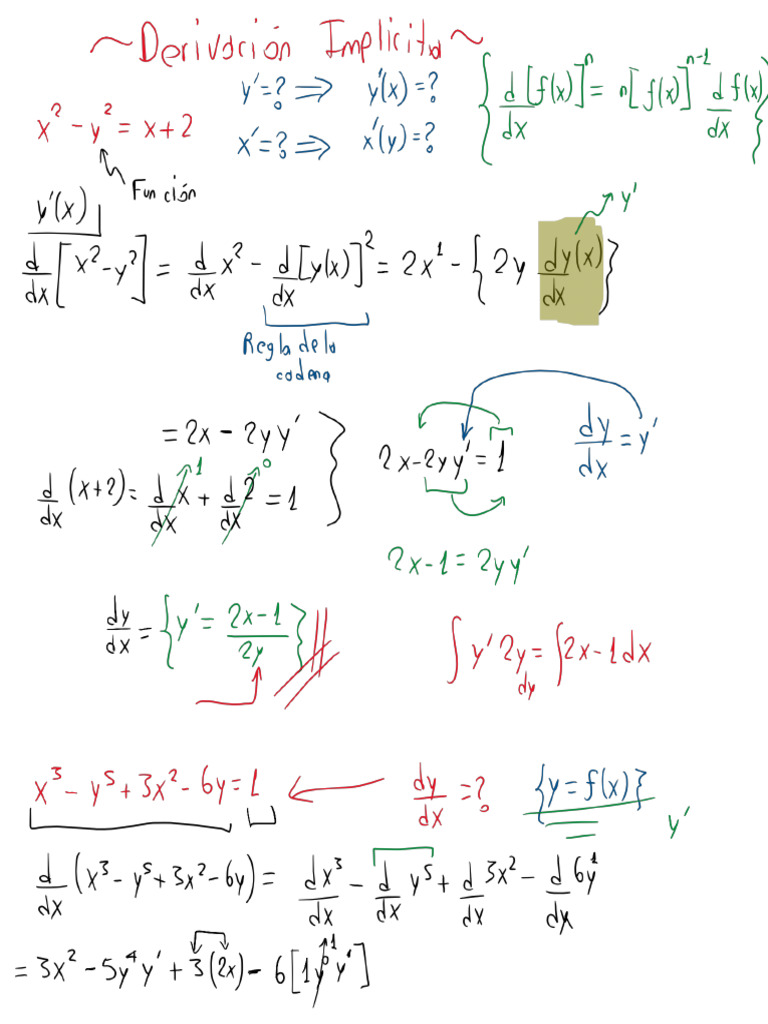 ~Derivación Implicita~
x² - y² = x+2
y'=? ⇒ y'(x)=?
x'=? ⇒ x'(y)=?
{d/dx [f(x)]ⁿ = n[f(x)]ⁿ⁻¹ d f(x)/dx}
Función
y'(x)
d/dx [x²-y²] = d/dx x² - d/dx [y(x)]² = 2x¹ - {2y dy(x)/dx}
y'
Regla de la
cadena
= 2x - 2yy'
d/dx (x+2) = d/dx x + d/dx 2 = 1
1
0
2x-2yy' = 1
dy/dx = y'
2x-1 = 2yy'
dy/dx = {y' = 2x-1/2y}
∫y' 2y dy = ∫2x-1dx
x³ - y⁵ + 3x² - 6y = 1
dy/dx = ?
{y = f(x)}
y'
d/dx (x³ - y⁵ + 3x² - 6y) = dx³/dx - d/dx y⁵ + d/dx 3x² - d/dx 6y¹
= 3x² - 5y⁴y' + 3(2x) - 6[1y⁰y']
1